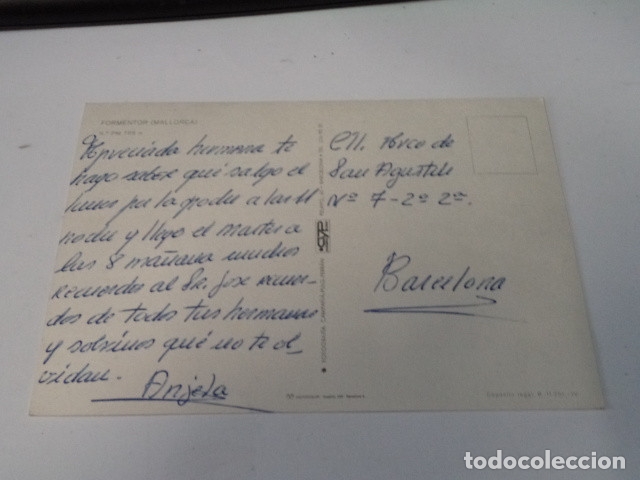 FORMENTOR (MALLORCA)
Apreciada hermana te
hago saber que salgo el
lunes por la noche a las 11
noche y llego el martes a
las 8 mañana muchos
recuerdos al Sr. Jose recuer-
dos de todos tus hermanos
y sobrinos que no te ol-
vidan.
Anjela
C/. Arco de
San Agustin
Nº 7-2º 2ª.
Barcelona
todocoleccion.net